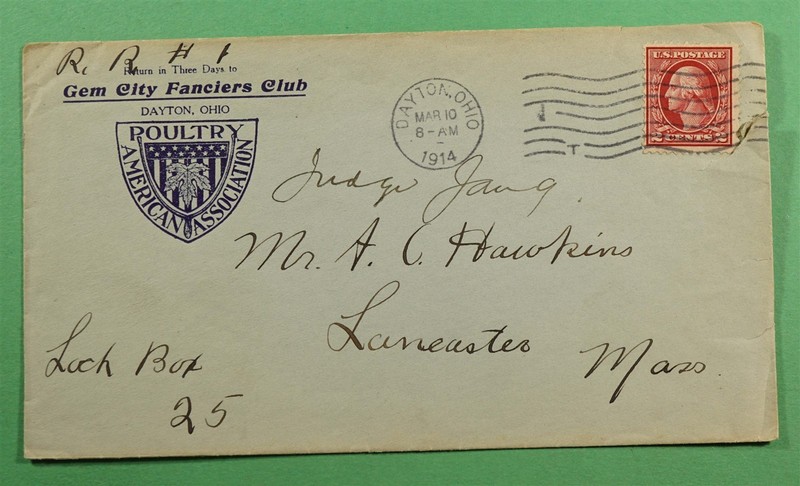 R. R # 1
Return in Three Days to
Gem City Fanciers Club
DAYTON, OHIO
POULTRY
AMERICAN ASSOCIATION
DAYTON, OHIO
MAR 10
8-AM
1914
T
U.S. POSTAGE
2 CENTS 2
Judge
Mr. A. C. Hawkins
Lancaster
Mass.
Lock Box
25